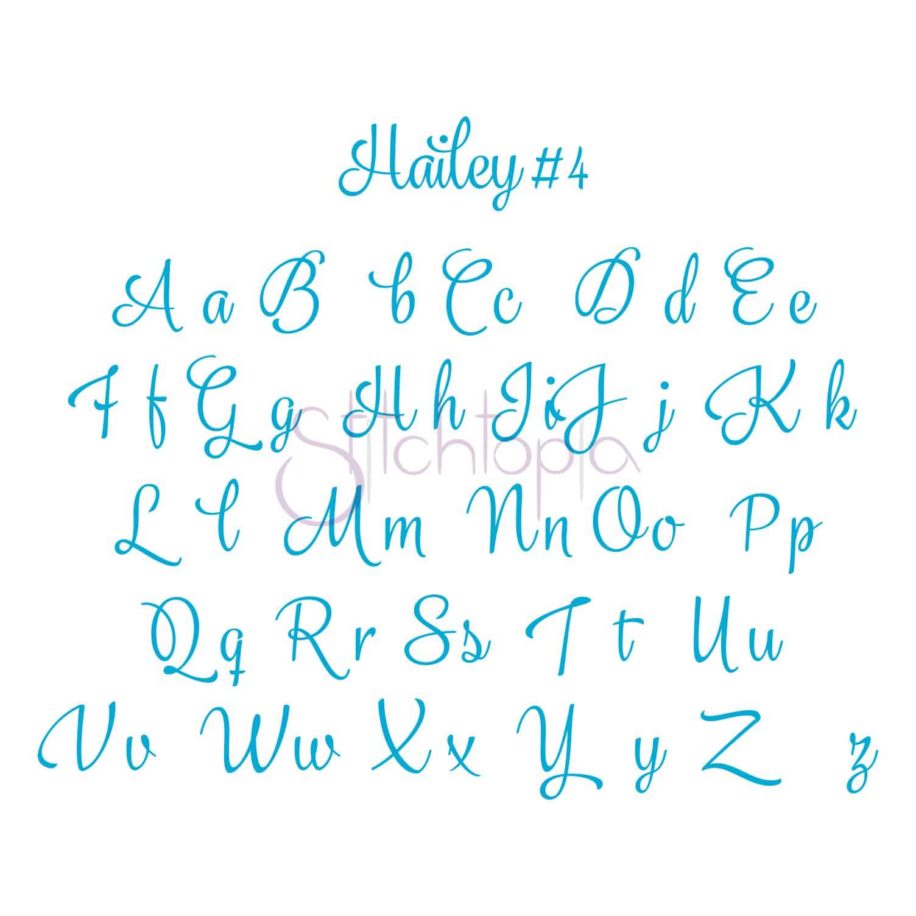 Hailey #4
A a B b C c D d E e
F f G g H h I i J j K k
Stitchtopia
L l M m N n O o P p
Q q R r S s T t U u
V v W w X x Y y Z z